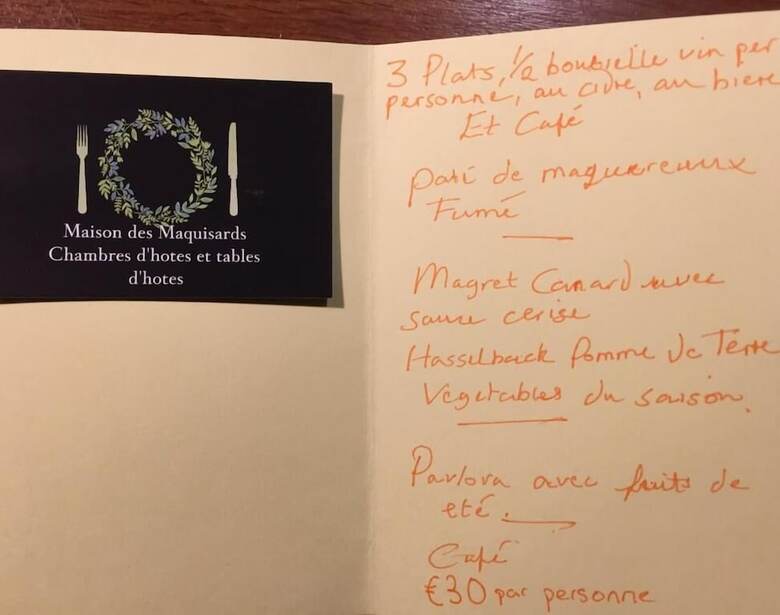 Maison des Maquisards
Chambres d'hotes et tables
d'hotes
3 Plats, ½ bouteille vin per
personne, au cidre, au biere
Et Café
paté de maquereaux
Fumé
Magret Canard avec
sauce cerise
Hasselback Pomme De Terre
Vegetables du saison.
Pavlova avec fruits de
eté.
Café
€30 par personne